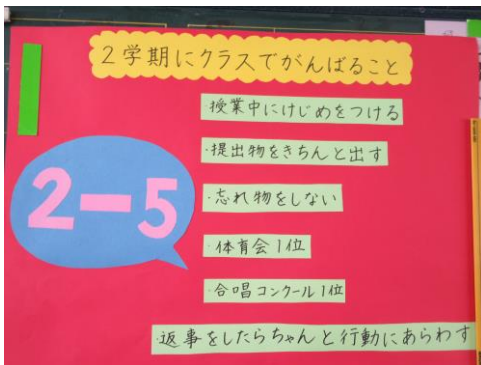 2学期にクラスでがんばること
授業中にけじめをつける
・提出物をきちんと出す
2-5
・忘れ物をしない
・体育会1位
・合唱コンクール1位
返事をしたらちゃんと行動にあらわす